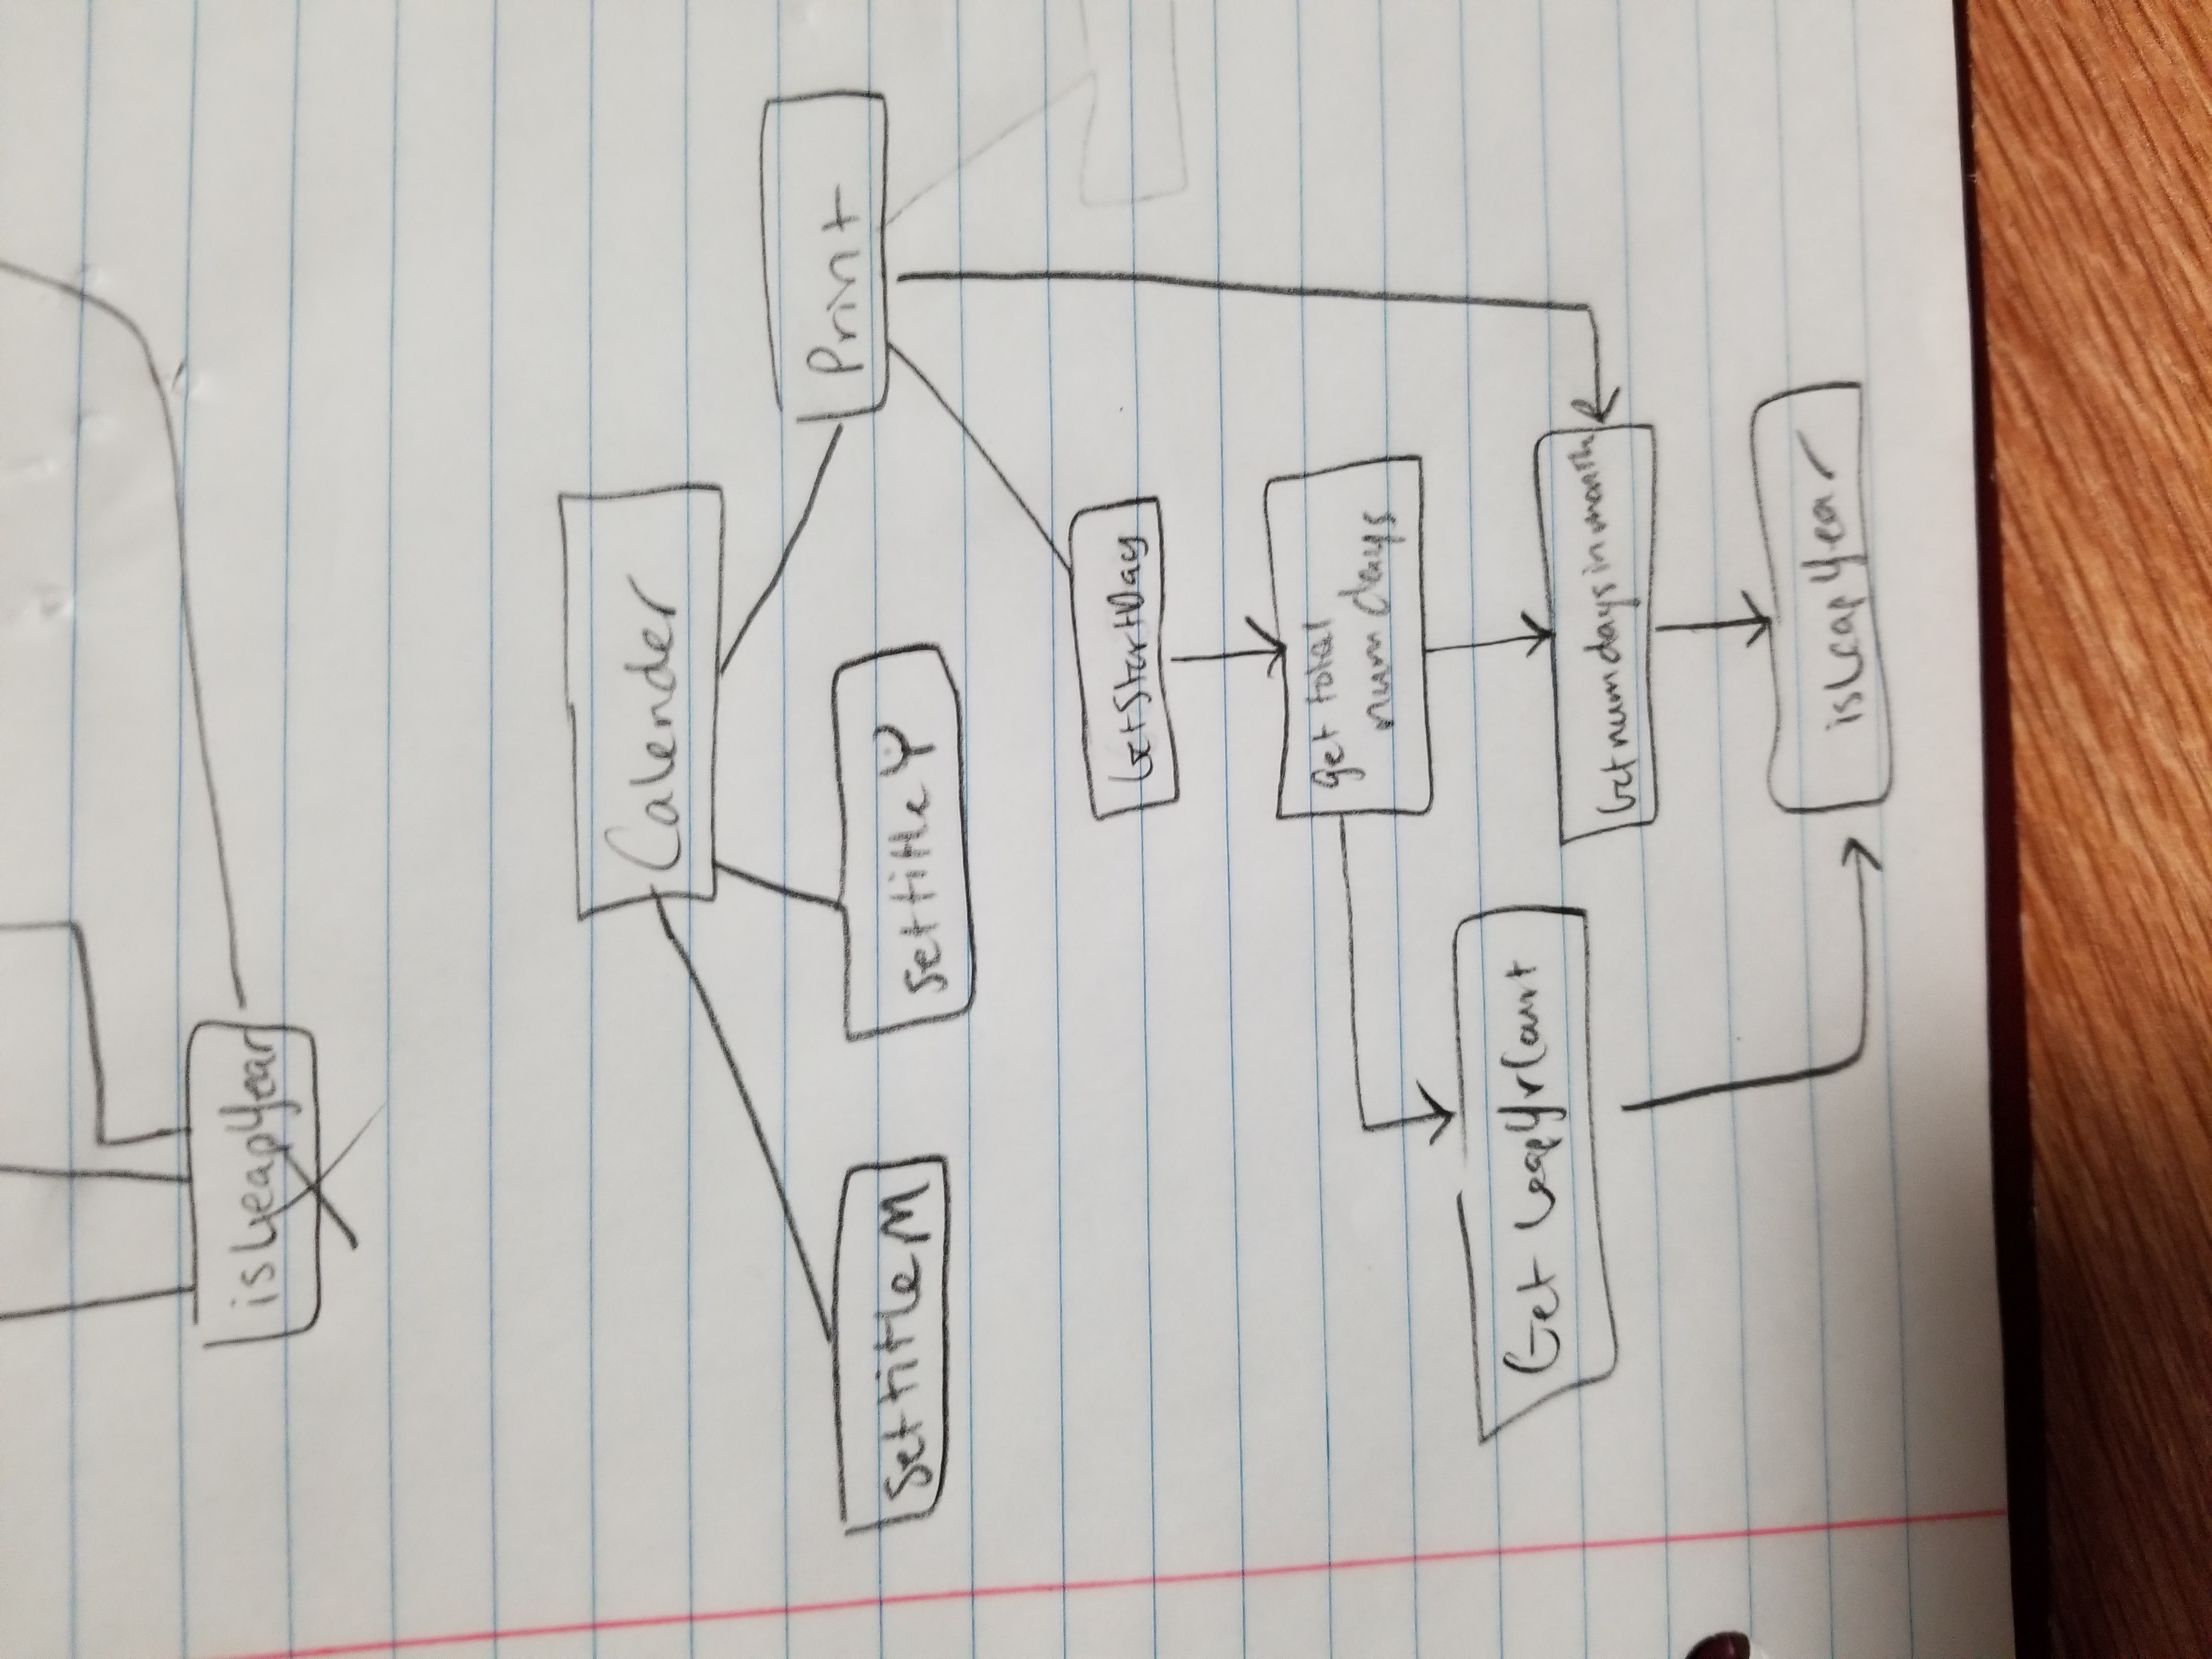 isLeapYear
Calender
Print
SettitleM
SettitleY
GetStartDay
get total
num days
Get LeapYrCount
Getnumdaysinmonth
isLeapYear